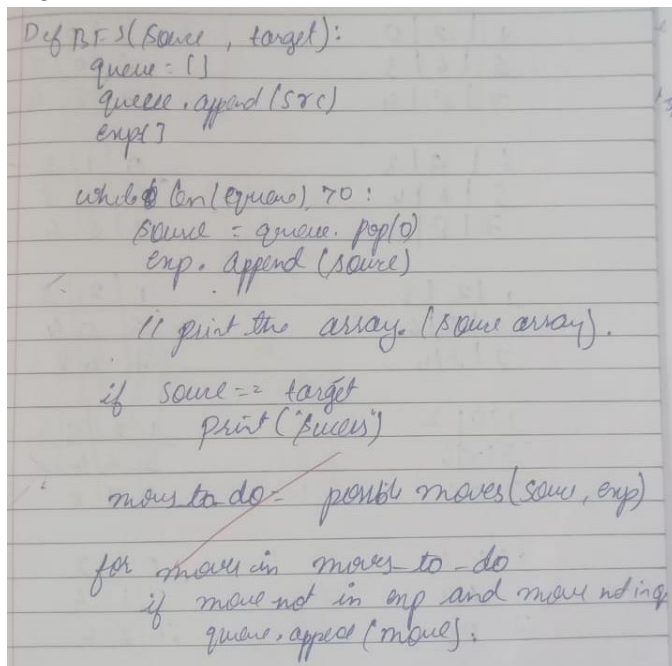 Def BFS(source, target):
queue = []
queue.append(src)
exp[]
while len(queue) >0:
source = queue.pop(0)
exp.append(source)
// print the array. (source array).
if source == target
print("Sucess")
moves_to_do = possible moves(source, exp)
for move in moves_to_do
if move not in exp and move not in q
queue.append(move);